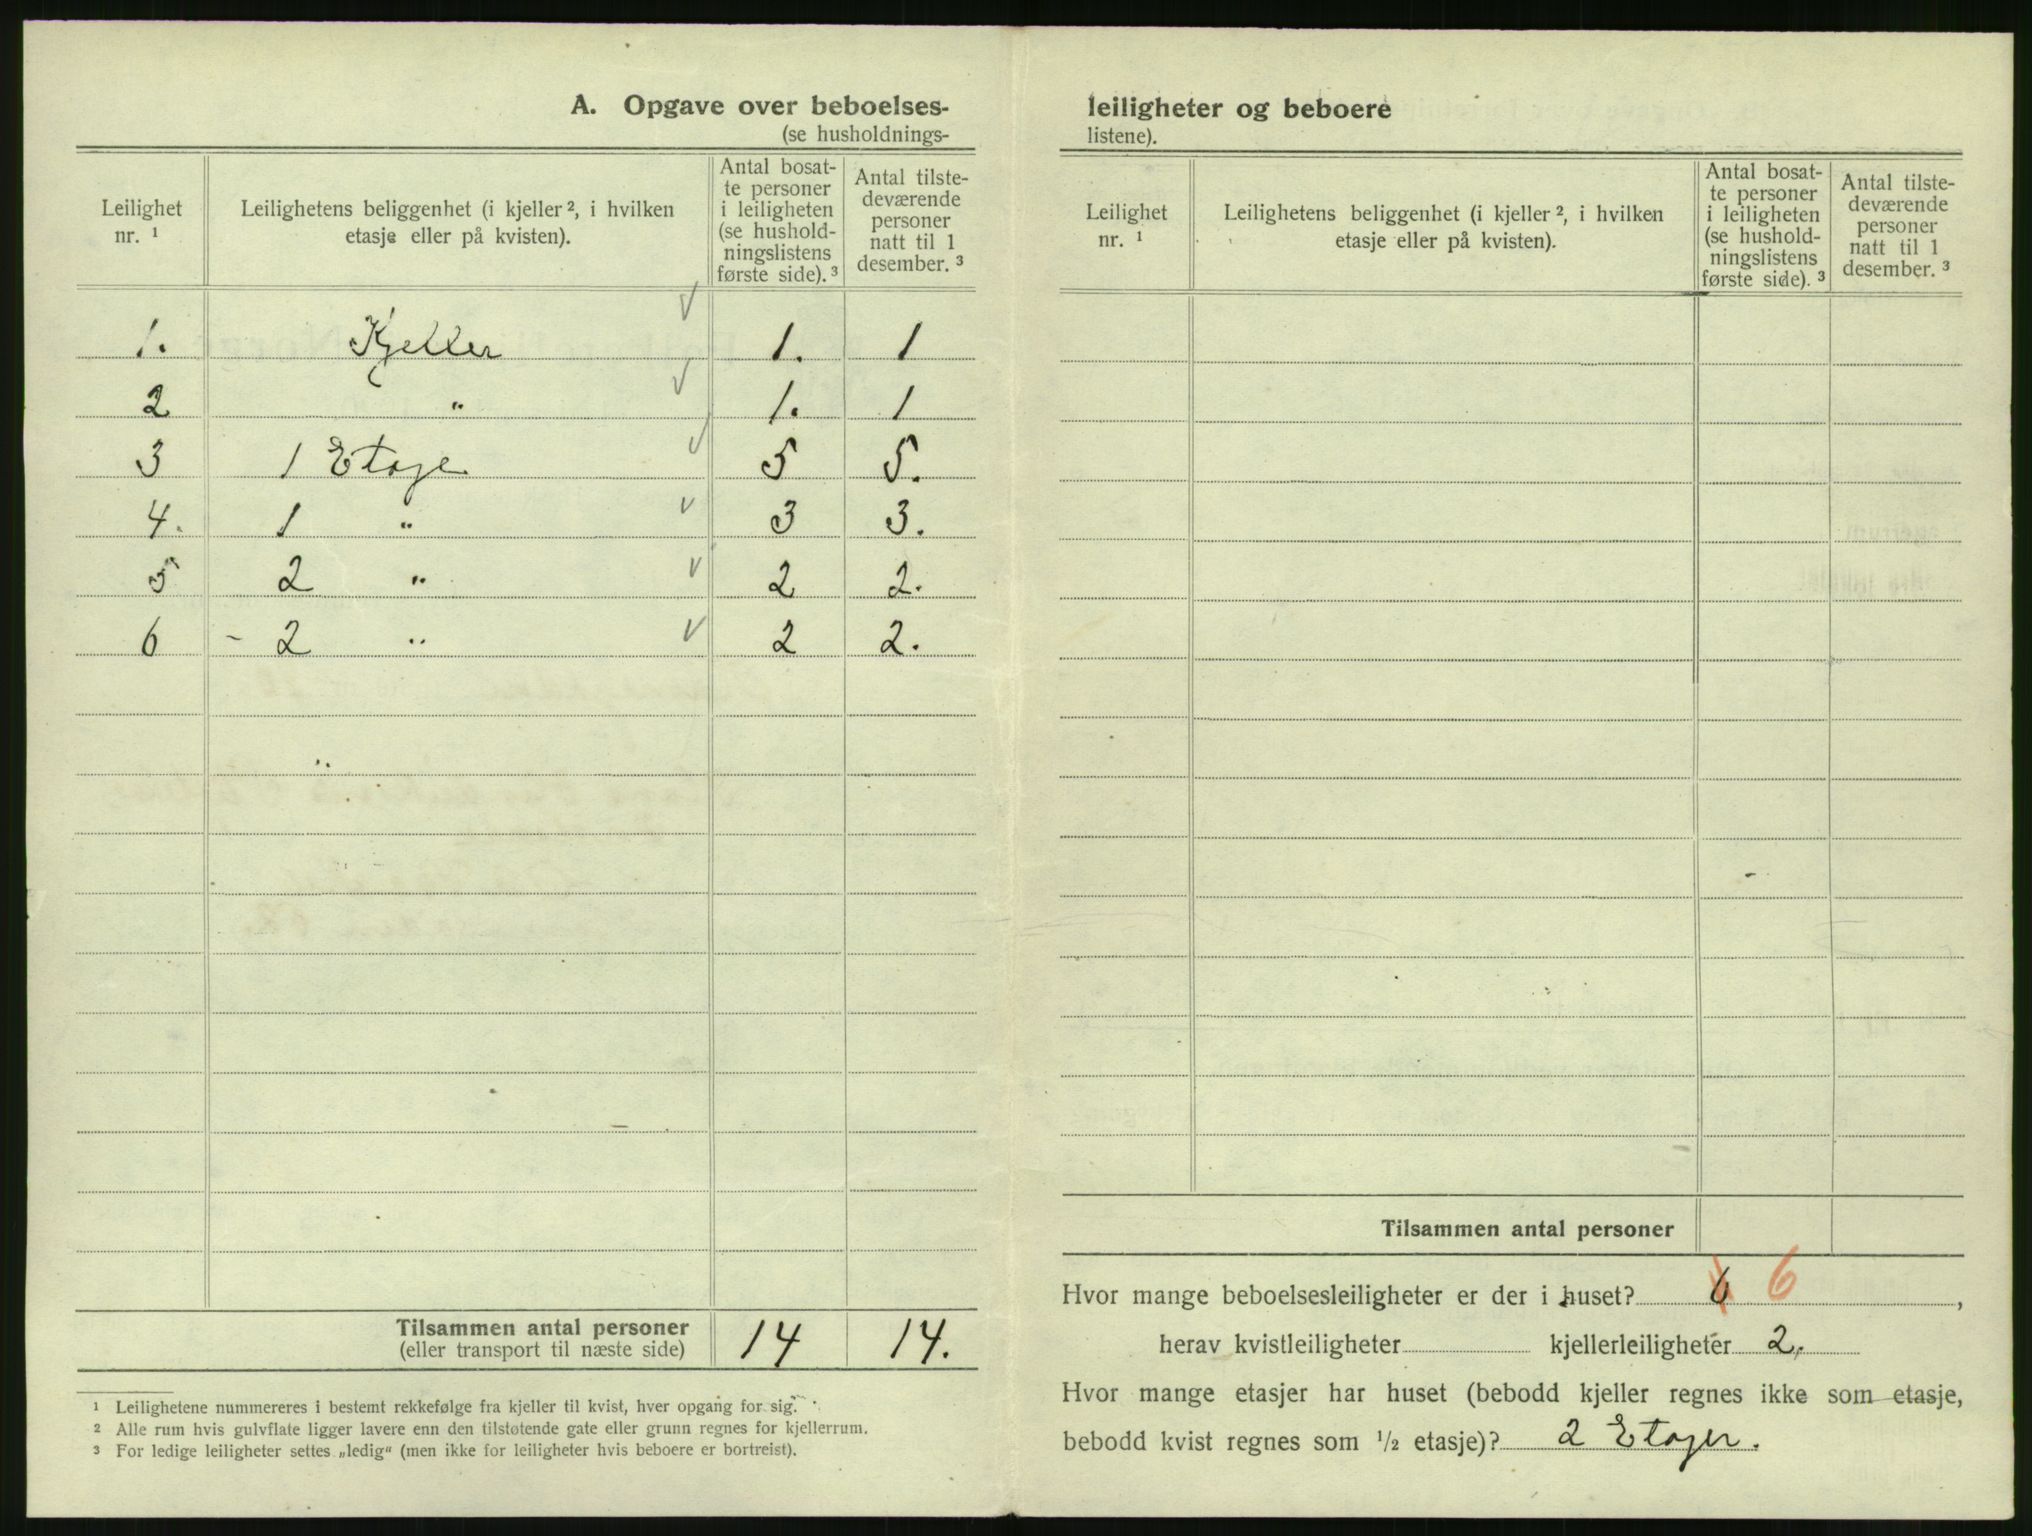 A. Opgave over beboelses-
(se husholdnings-
Leilighet nr. ¹
Leilighetens beliggenhet (i kjeller ², i hvilken etasje eller på kvisten).
Antal bosat-
te personer
i leiligheten
(se hushold-
ningslistens
første side). ³
Antal tilste-
deværende
personer
natt til 1
desember. ³
1. Kjeller √ 1. 1
2 " √ 1. 1
3 1 Etage √ 5 5.
4. 1 " √ 3 3.
5 2 " √ 2 2.
6 - 2 " √ 2 2.
Tilsammen antal personer 14 14.
(eller transport til næste side)
¹ Leilighetene nummereres i bestemt rekkefølge fra kjeller til kvist, hver opgang for sig.
² Alle rum hvis gulvflate ligger lavere enn den tilstøtende gate eller grunn regnes for kjellerrum.
³ For ledige leiligheter settes „ledig“ (men ikke for leiligheter hvis beboere er bortreist).
leiligheter og beboere
listene).
Leilighet nr. ¹
Leilighetens beliggenhet (i kjeller ², i hvilken etasje eller på kvisten).
Antal bosat-
te personer
i leiligheten
(se hushold-
ningslistens
første side). ³
Antal tilste-
deværende
personer
natt til 1
desember. ³
Tilsammen antal personer
Hvor mange beboelsesleiligheter er der i huset? 6 6,
herav kvistleiligheter kjellerleiligheter 2.
Hvor mange etasjer har huset (bebodd kjeller regnes ikke som etasje,
bebodd kvist regnes som ½ etasje)? 2 Etager.